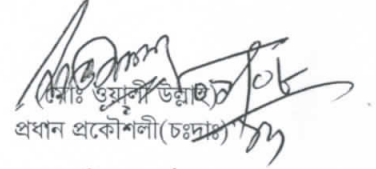 (মোঃ ওয়ালী উল্লাহ)
প্রধান প্রকৌশলী(চঃদাঃ)